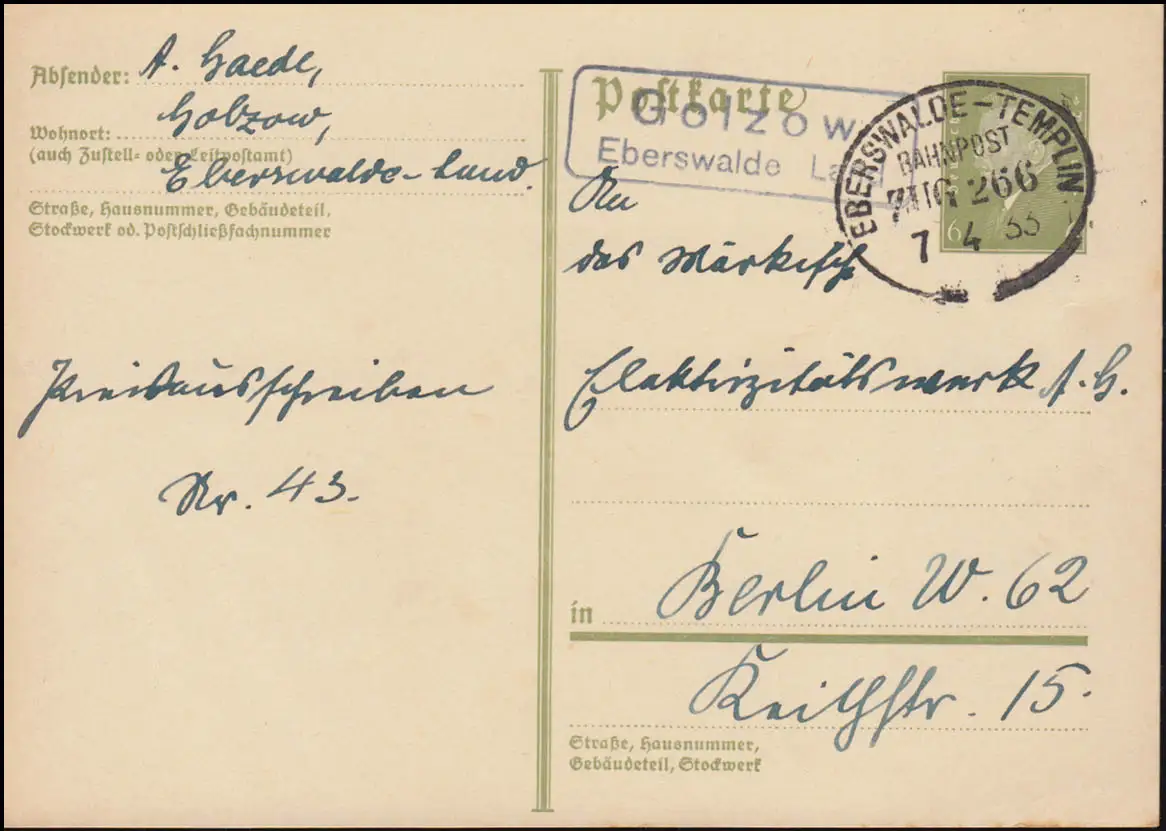 Absender: A. Gaede,
Golzow,
Wohnort:
(auch Zustell- oder Leitpostamt)
Eberswalde-Land.
Straße, Hausnummer, Gebäudeteil,
Stockwerk od. Postschließfachnummer
Preisausschreiben
Nr. 43.
Postkarte
Golzow
Eberswalde
EBERSWALDE-TEMPLIN
BAHNPOST
ZUG 266
7 4 33
6
An
das Märkische
Elektrizitätswerk A.G.
in Berlin W. 62
Keithstr. 15.
Straße, Hausnummer,
Gebäudeteil, Stockwerk